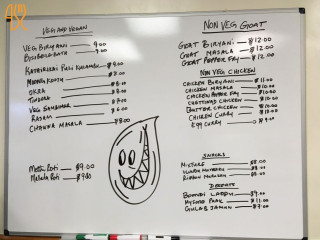 VEG AND VEGAN
VEG BIRYANI — 9.00
BISIBELE BATH — 9.00
KATHIRIKAI PULI KULAMBU — $9.00
OKRA — $8.00
TINDORA — $8.00
VEG SAMBHAR — $7.00
RASAM — $6.00
CHANNA MASALA — $8.00
Methi Roti — $9.00
Masala Roti — $9.00
NON VEG GOAT
GOAT BIRYANI — $12.00
GOAT MASALA — $12.00
GOAT PEPPER FRY — $12.00
NON VEG CHICKEN
CHICKEN BIRYANI — $11.00
CHICKEN MASALA — $10.00
CHICKEN PEPPER FRY — $10.00
CHETTINAD CHICKEN — $10.00
BUTTER CHICKEN — $10.00
CHICKEN CURRY — $10.00
EGG CURRY — $9.00
SNACKS
MIXTURE — $8.00
RIBBON MURUKKU — $8.00
DESSERTS
BOONDI LADDU — $9.00
MYSORE PAK — $11.00
GULAB JAMUN — $7.00